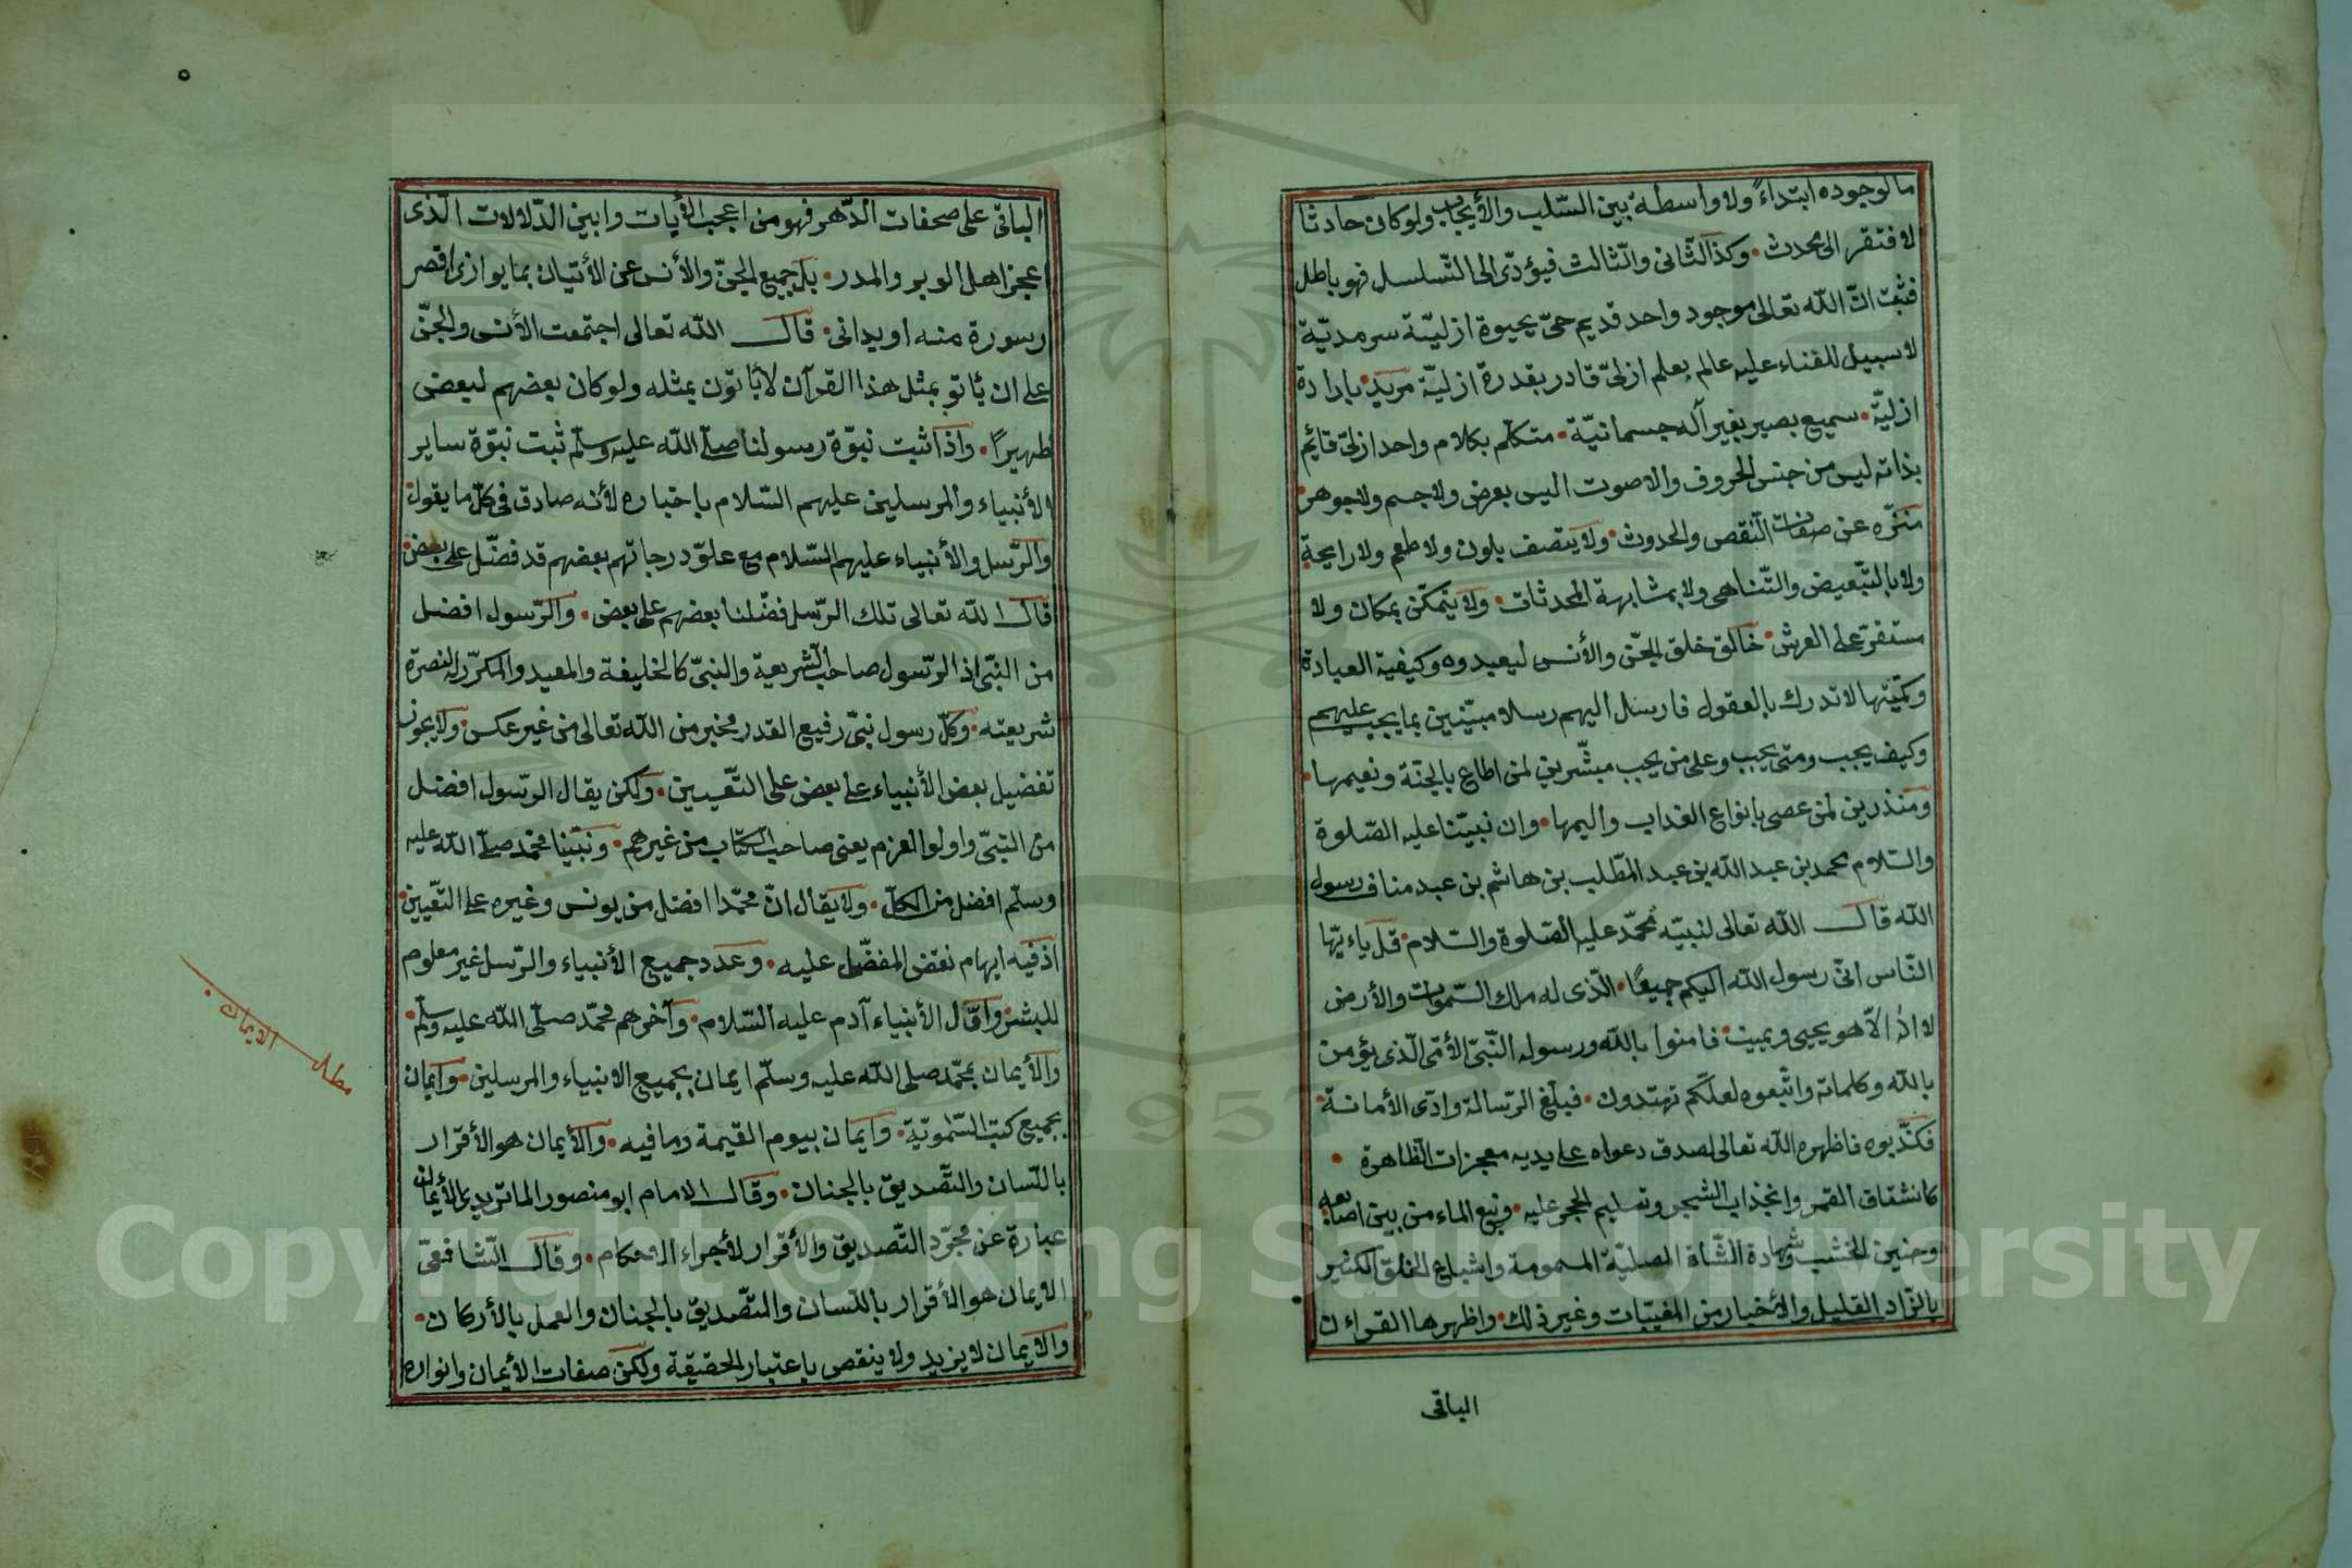 ما لوجوده ابتداءً ولا واسطة بين السّلب والأيجاب ولو كان حادثا
لافتقر الى محدث • وكذا الثانى والثالث فيؤدّى الى التّسلسل فهو باطل
فثبت انّ الله تعالى موجود واحد قديم حىّ بحيوة ازليّة سرمديّة
لا سبيل للفناء عليه عالم بعلم ازلىّ قادر بقدرة ازليّة مريد • بارادة
ازليّة • سميع بصير بغير آله جسمانيّة • متكلّم بكلام واحد ازلىّ قائم
بذاته ليس من جنس الحروف والاصوت اليس بعرض ولا جسم ولا جوهر •
منزّه عن صفات النّقص والحدوث • ولا يتصف بلون ولا طعم ولا رايحة
ولا بالتّبعيض والتّناهى ولا بمشابهة المحدثات • ولا يتمكّن بمكان ولا
مستقرّ على العرش • خالق خلق الجنّ والأنس ليعبدوه وكيفية العبادة
وكمّيّتها لا تدرك بالعقول فارسل اليهم رسلا مبيّنين بما يجب عليهم
وكيف يجب ومتى يجب وعلى من يجب مبشّرين لمن اطاع بالجنّة ونعيمها •
ومنذرين لمن عصى بانواع العذاب واليمها • وان نبيّنا عليه الصّلوة
والسّلام محمد بن عبد الله بن عبد المطّلب بن هاشم بن عبد مناف رسول
الله قال الله تعالى لنبيّه محمّد عليه الصّلوة والسّلام • قل ياءيّها
النّاس انّى رسول الله اليكم جميعًا • الّذى له ملك السّموات والأرض
لا اله الاّ هو يحيى ويميت • فامنوا بالله ورسوله النّبىّ الأمّى الّذى يؤمن
بالله وكلماته واتّبعوه لعلّكم تهتدون • فبلّغ الرّسالة وادّى الأمانة •
فكذّبوه فاظهره الله تعالى لصدق دعواه على يديه معجزات الظاهرة •
كانشقاق القمر وانجذاب الشّجر وتسليم الحجر عليه • ونبع الماء من بين اصابعه
وحنين الخشب وشهادة الشّاة المصليّة المسمومة واشباع الخلق الكثير
بالزّاد القليل والأخبار من المغيّبات وغير ذلك • واظهرها القراءن
الباقى
الباقى على صحفات الدّهر فهو من اعجب الأيات وابين الدّلالات الّذى
اعجز اهل الوبر والمدر • بل جميع الجنّ والأنس عن الأتيان بما يوازى اقصر
سورة منه او يدانى • قال الله تعالى اجتمعت الأنس والجنّ
على ان يأتو بمثل هذا القرآن لا يأتون بمثله ولو كان بعضهم لبعض
ظهيرًا • واذا ثبت نبوّة رسولنا صلى الله عليه وسلّم ثبت نبوّة ساير
الأنبياء والمرسلين عليهم السّلام باخباره لأنه صادق فى كلّ ما يقول •
والرّسل والأنبياء عليهم السّلام مع علوّ درجاتهم بعضهم قد فضّل على بعض •
قال الله تعالى تلك الرّسل فضّلنا بعضهم على بعض • والرّسول افضل
من النّبىّ اذ الرّسول صاحب الشريعة والنبىّ كالخليفة والمعيد والمكرّر لنصرة
شريعته • وكلّ رسول نبىّ رفيع القدر مخبر من الله تعالى من غير عكس • ولا يجوز
تفضيل بعض الأنبياء على بعض على التّعيين • ولكن يقال الرّسول افضل
من النبّى واولوا العزم يعنى صاحب الكتاب من غيرهم • ونبيّنا محمّد صلى الله عليه
وسلّم افضل من الكلّ • ولا يقال انّ محمّدا افضل من يونس وغيره على التّعيين •
اذ فيه ايهام نقص المفضّل عليه • وعدد جميع الأنبياء والرّسل غير معلوم
للبشر • واوّل الأنبياء آدم عليه السّلام • وآخرهم محمّد صلّى الله عليه وسلّم •
والأيمان بمحمّد صلى الله عليه وسلّم ايمان بجميع الانبياء والمرسلين • وايمان
بجميع كتب السّموتيّة • وايمان بيوم القيمة وما فيه • والأيمان هو الأقرار
باللّسان والتّصديق بالجنان • وقال الامام ابو منصور الماتريدى الأيمان
عبارة عن مجرّد التّصديق والأقرار لأجراء الاحكام • وقال الشّافعىّ
الايمان هو الأقرار باللّسان والتّصديق بالجنان والعمل بالأركان •
والايمان لا يزيد ولا ينقص باعتبار الحقيقة ولكن صفات الأيمان وانواره
مطلب الايمان
٥
Copyright © King Saud University
1957